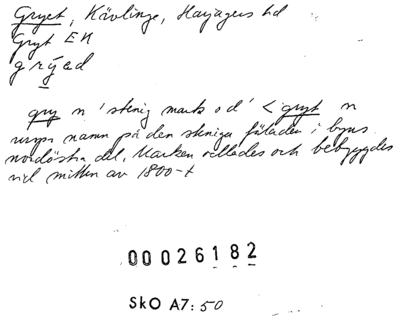 Gryet, Kävlinge, Harjagers hd
Gryt EK
grýəd
gry n 'stenig mark o d' < gryt n
urspr namn på den steniga fäladen i byns
nordöstra del. Marken odlades och bebyggdes
vid mitten av 1800-t
00026182
SkO A7:50